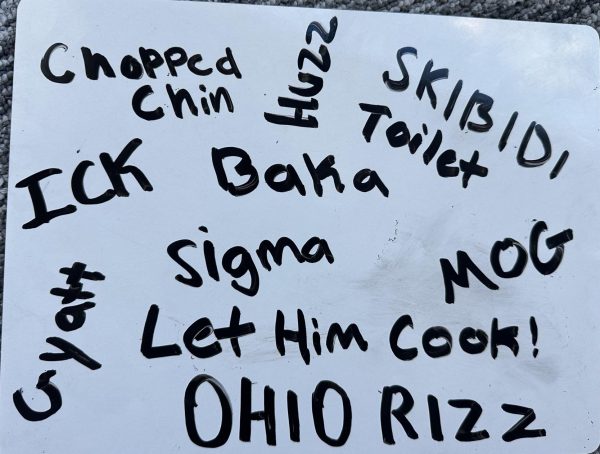 Chopped
Chin
Huzz
SKIBIDI
Toilet
ICK
Baka
Sigma
MOG
Gyatt
Let Him Cook!
OHIO RIZZ